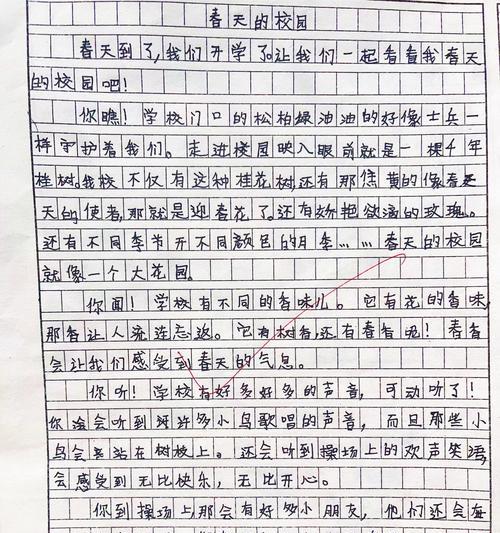 春天的校园
春天到了,我们开学了。让我们一起看看我春天
的校园吧!
你瞧!学校门口的松柏绿油油的好像士兵一
样守护着我们。走进校园映入眼前就是一棵4年
桂树。我校不仅有这种桂花树还有那焦黄的像春
天的使者,那就是迎春花了。还有娇艳欲滴的玫瑰。
还有不同季节开不同颜色的月季……春天的校园
就像一个大花园。
你闻!学校有不同的香味儿。它有花的香味,
那香让人流连忘返。它有树香,还有春香呢!春香
会让我们感受到春天的气息。
你听!学校有好多好多的声音,可动听了!
你会听到许多小鸟歌唱的声音,而且那些小
鸟会站在树枝上。还会听到操场上的欢声笑语,
会感受到无比快乐,无比开心。
你到操场上那会有好多小朋友,他们还会在